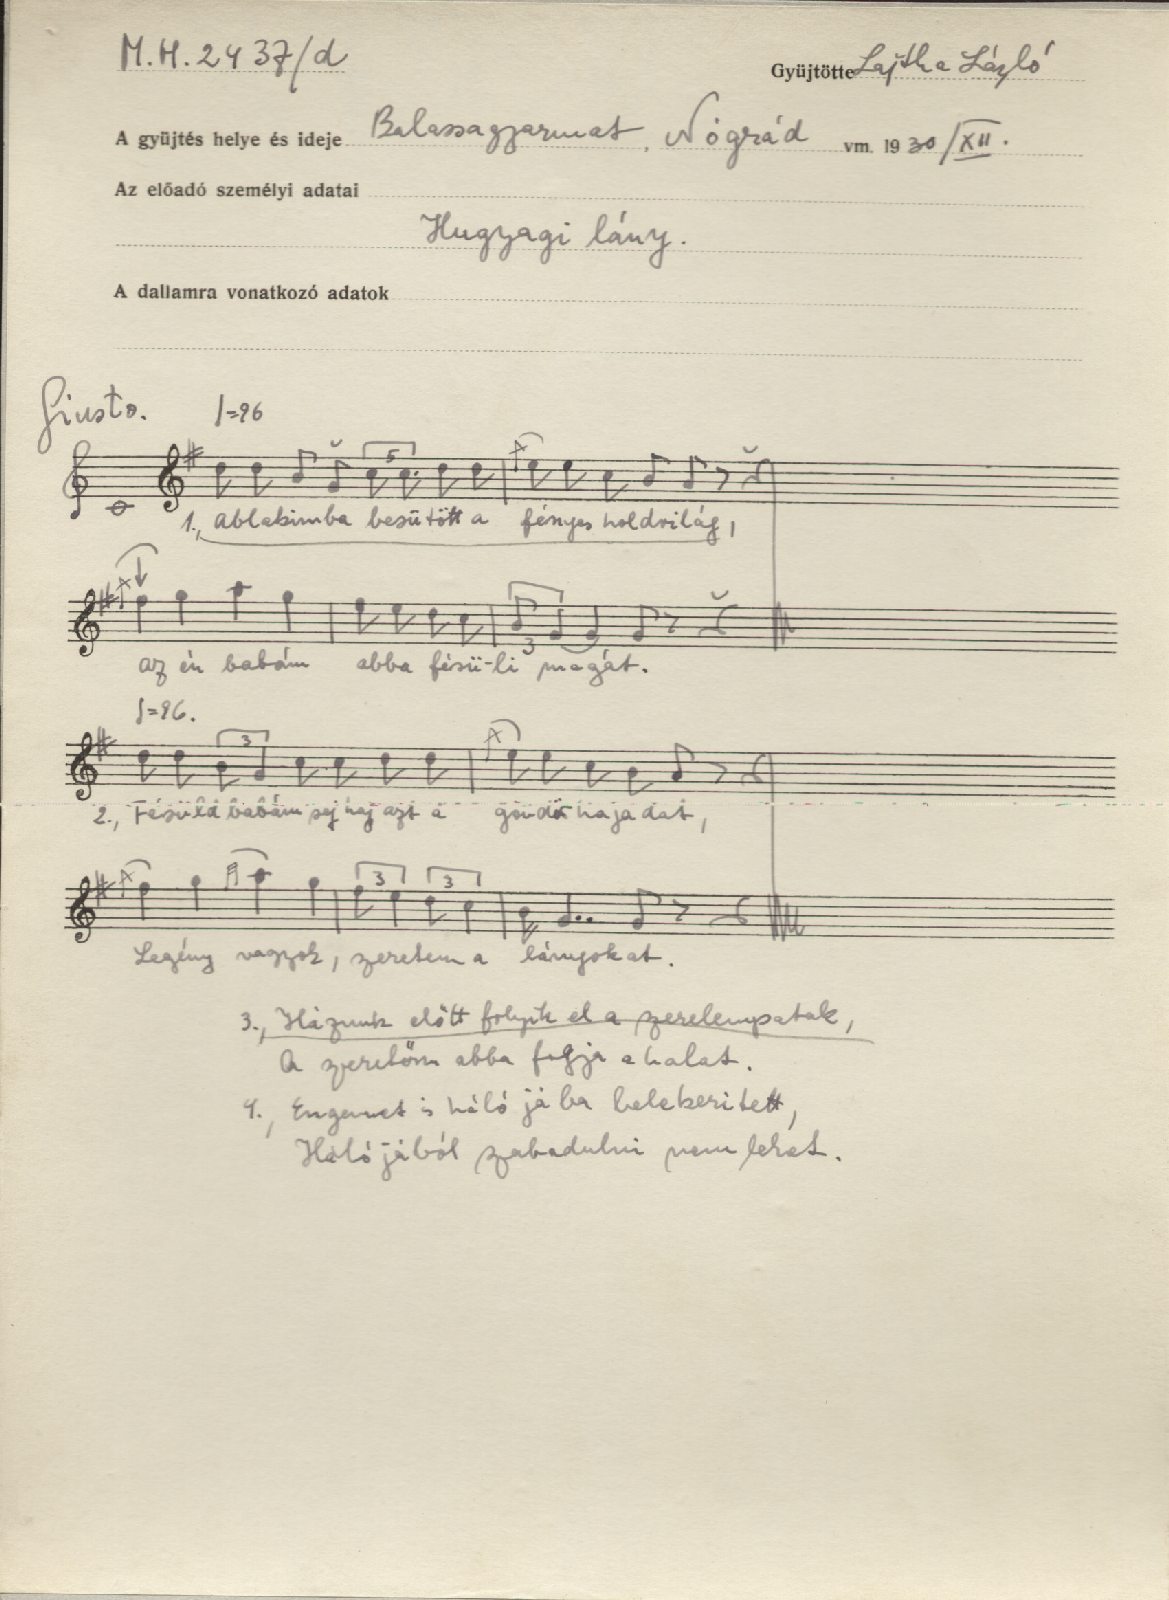 M.H. 2437/d
Gyüjtötte Lajtha László
A gyüjtés helye és ideje Balassagyarmat, Nógrád vm. 1930/XII.
Az előadó személyi adatai
Hugyagi lány.
A dallamra vonatkozó adatok
Giusto. ♩=96
5
1., Ablakimba besütött a fényes holdvilág,
3
az én babám abba fésü-li magát.
♩=96.
3
2., Fésüld babám sej haj azt a göndör hajadat,
3 3
Legény vagyok, szeretem a lányokat.
3., Házunk előtt folyik el a szerelempatak,
A szeretőm abba fogja a halat.
4., Engemet is hálójába belekerített,
Hálójából szabadulni nem lehet.